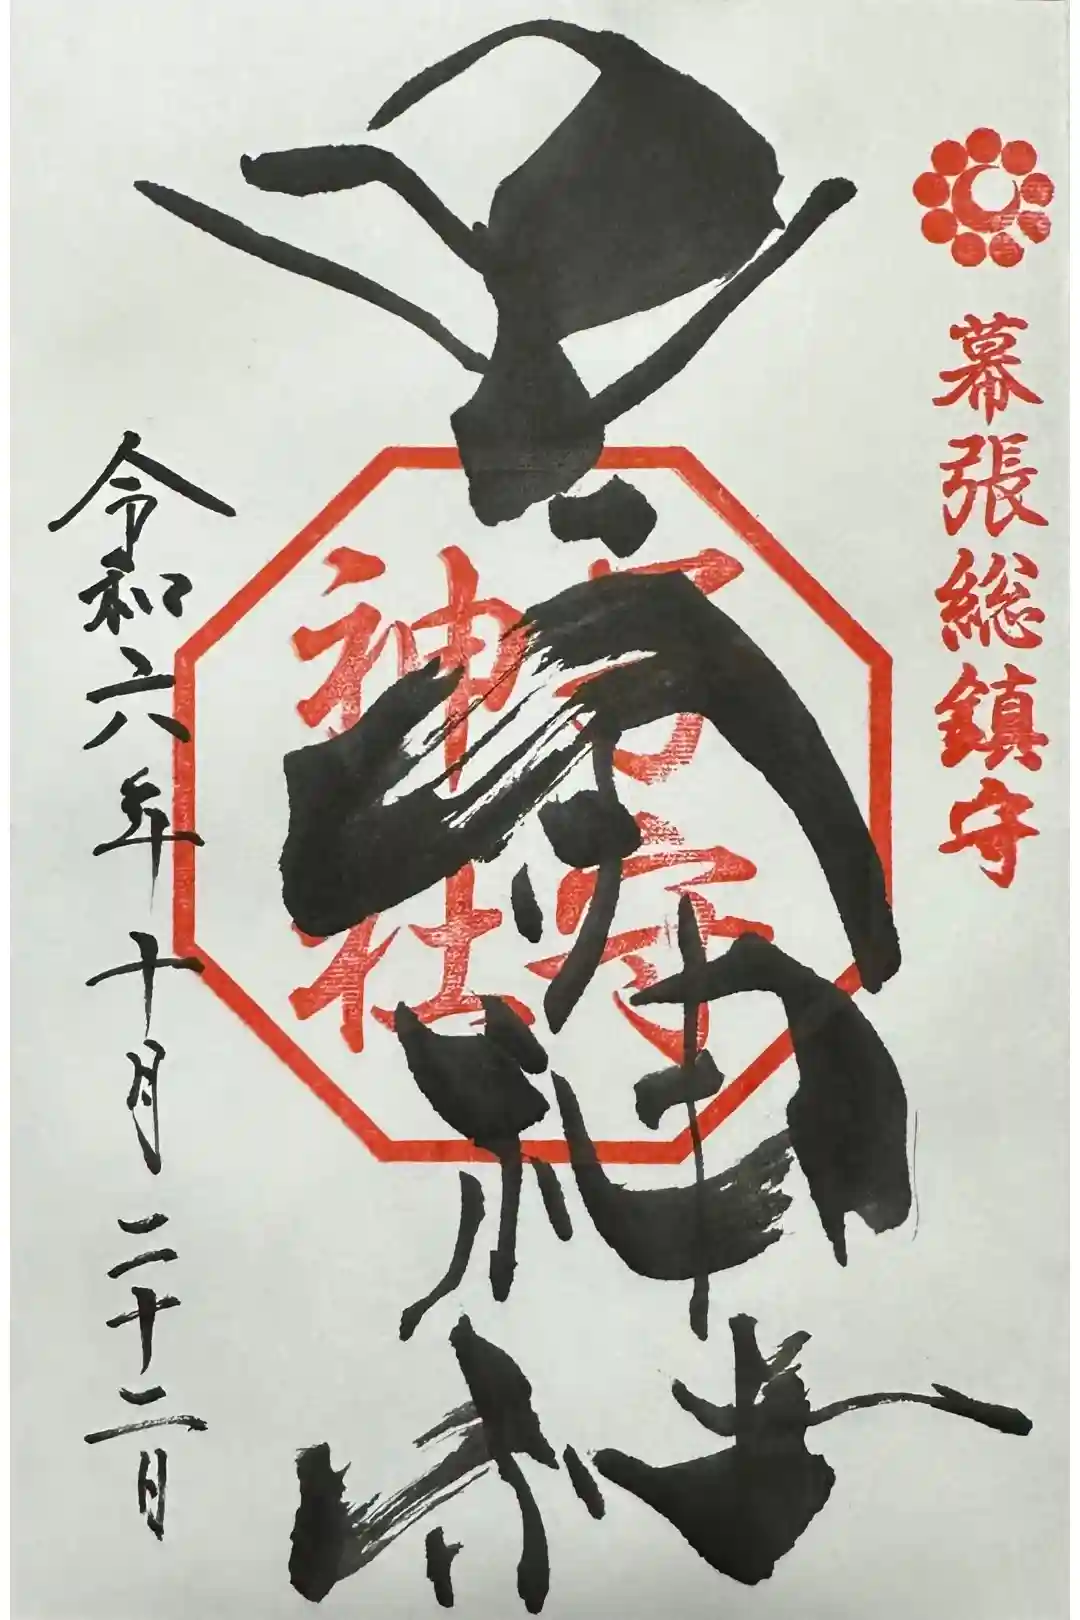 幕張総鎮守
子守神社
子守神社
令和六年十月二十二日